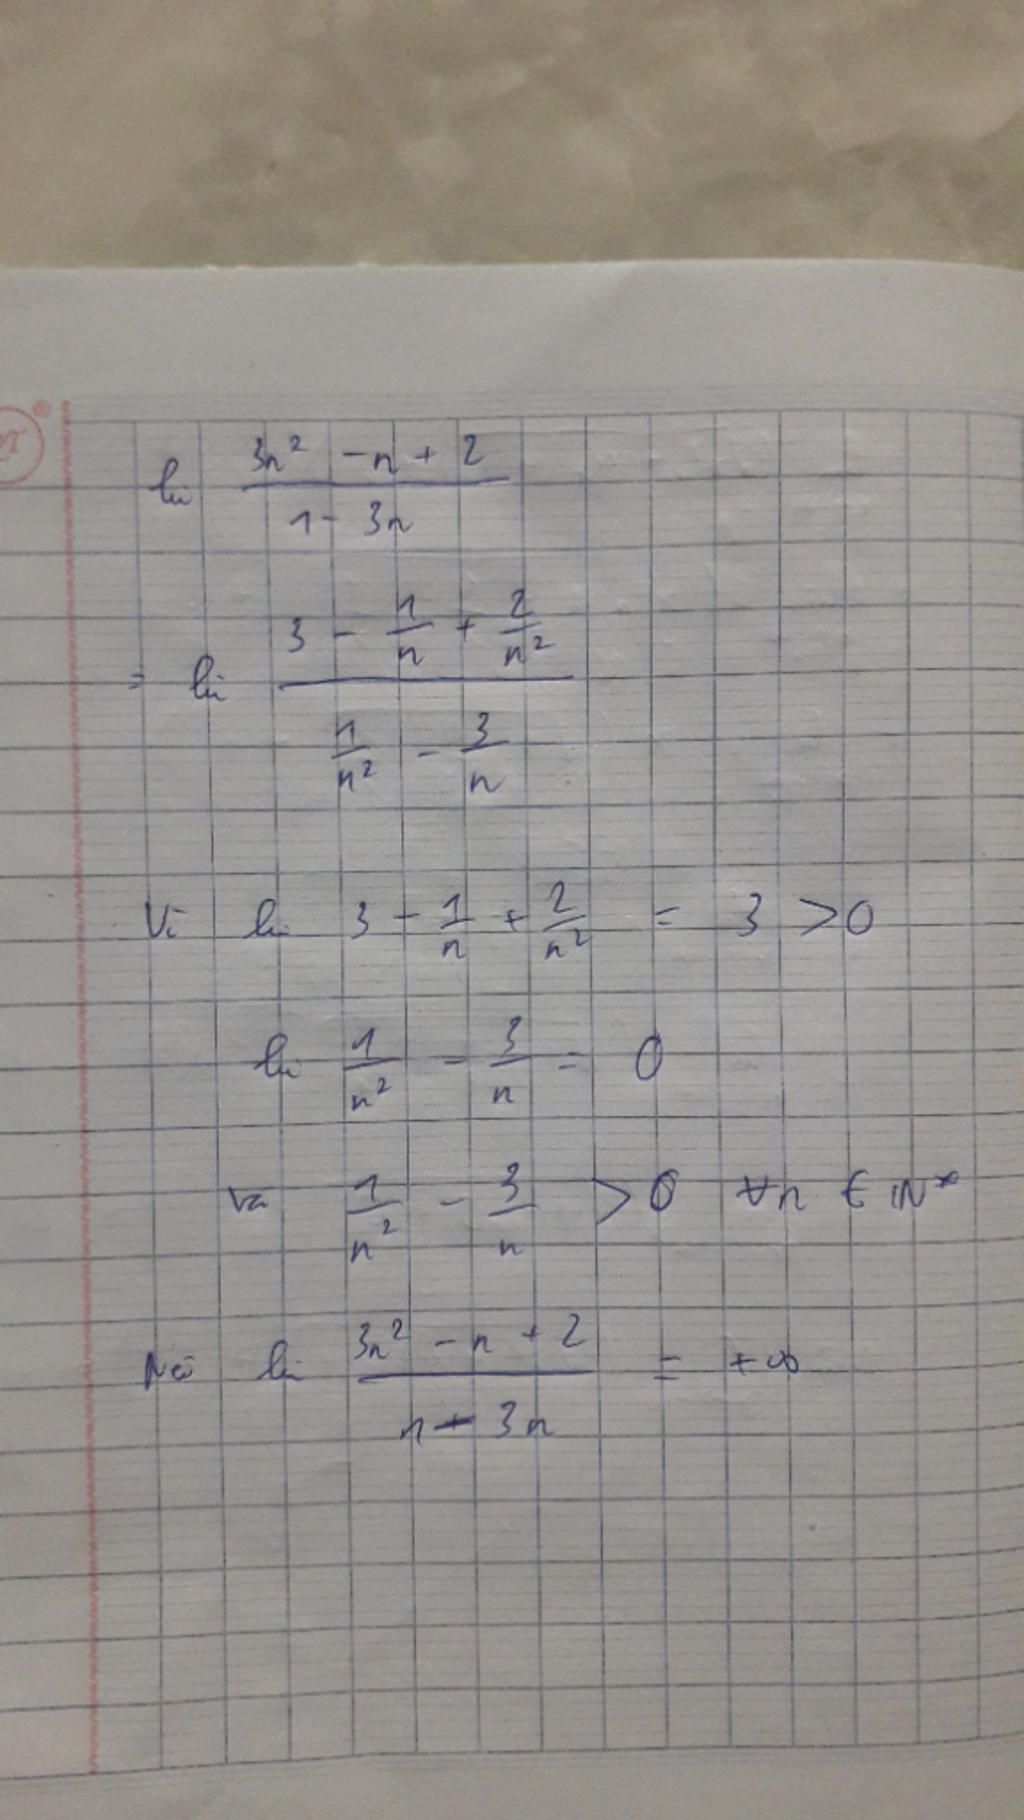 lim (3n² - n + 2)/(1 - 3n)
= lim (3 - 1/n + 2/n²)/(1/n² - 3/n)
Vì lim 3 - 1/n + 2/n² = 3 > 0
lim 1/n² - 3/n = 0
Và 1/n² - 3/n > 0 ∀n ∈ ℕ*
Nên lim (3n² - n + 2)/(1 - 3n) = +∞